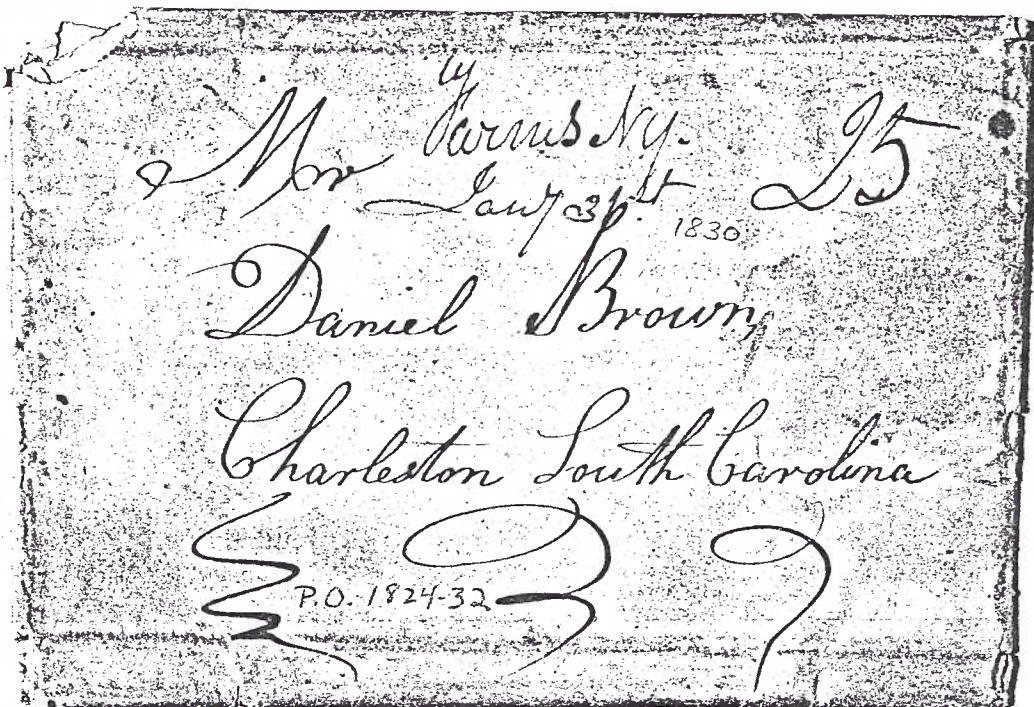 Farms Ny.
Mr 25
Jany 31st 1830
Daniel Brown,
Charleston South Carolina
P.O. 1824-32